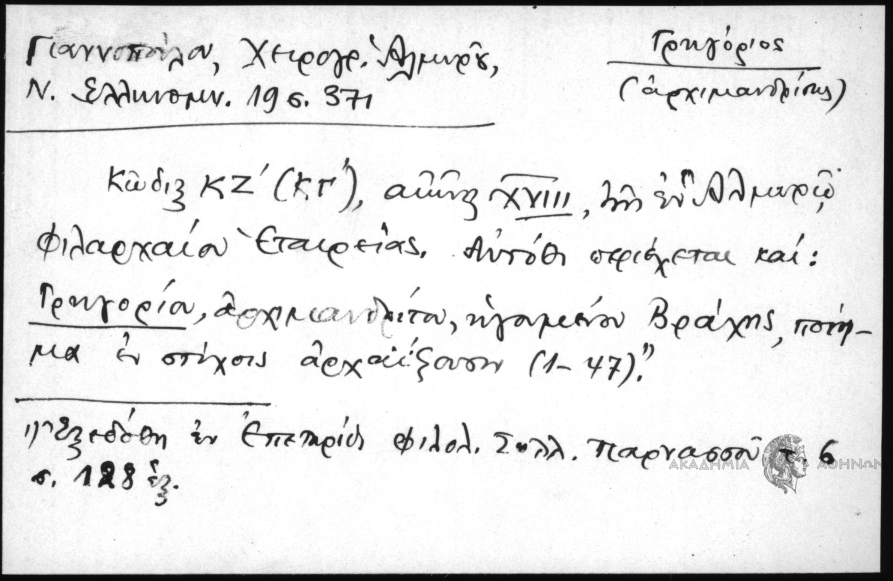 Γιαννοπούλου, Χειρογρ. Ἁλμυροῦ,
Ν. Ἑλληνομν. 19 σ. 371
Γρηγόριος
(ἀρχιμανδρίτης)
Κῶδιξ ΚΖ΄ (ΚΓ΄), αἰῶνος XVIII, τῆς ἐν Ἁλμυρῷ
Φιλαρχαίου Ἑταιρείας. Αὐτόθι περιέχεται καί:
Γρηγορίου, ἀρχιμανδρίτου, ἡγουμένου Βράχης, ποίη-
μα ἐν στίχοις ἀρχαΐζουσιν (1-47)."
Ἐξεδόθη ἐν Ἐπετηρίδι Φιλολ. Συλλ. Παρνασσοῦ τ. 6
σ. 128 ἑξ.
ΑΚΑΔΗΜΙΑ ΑΘΗΝΩΝ